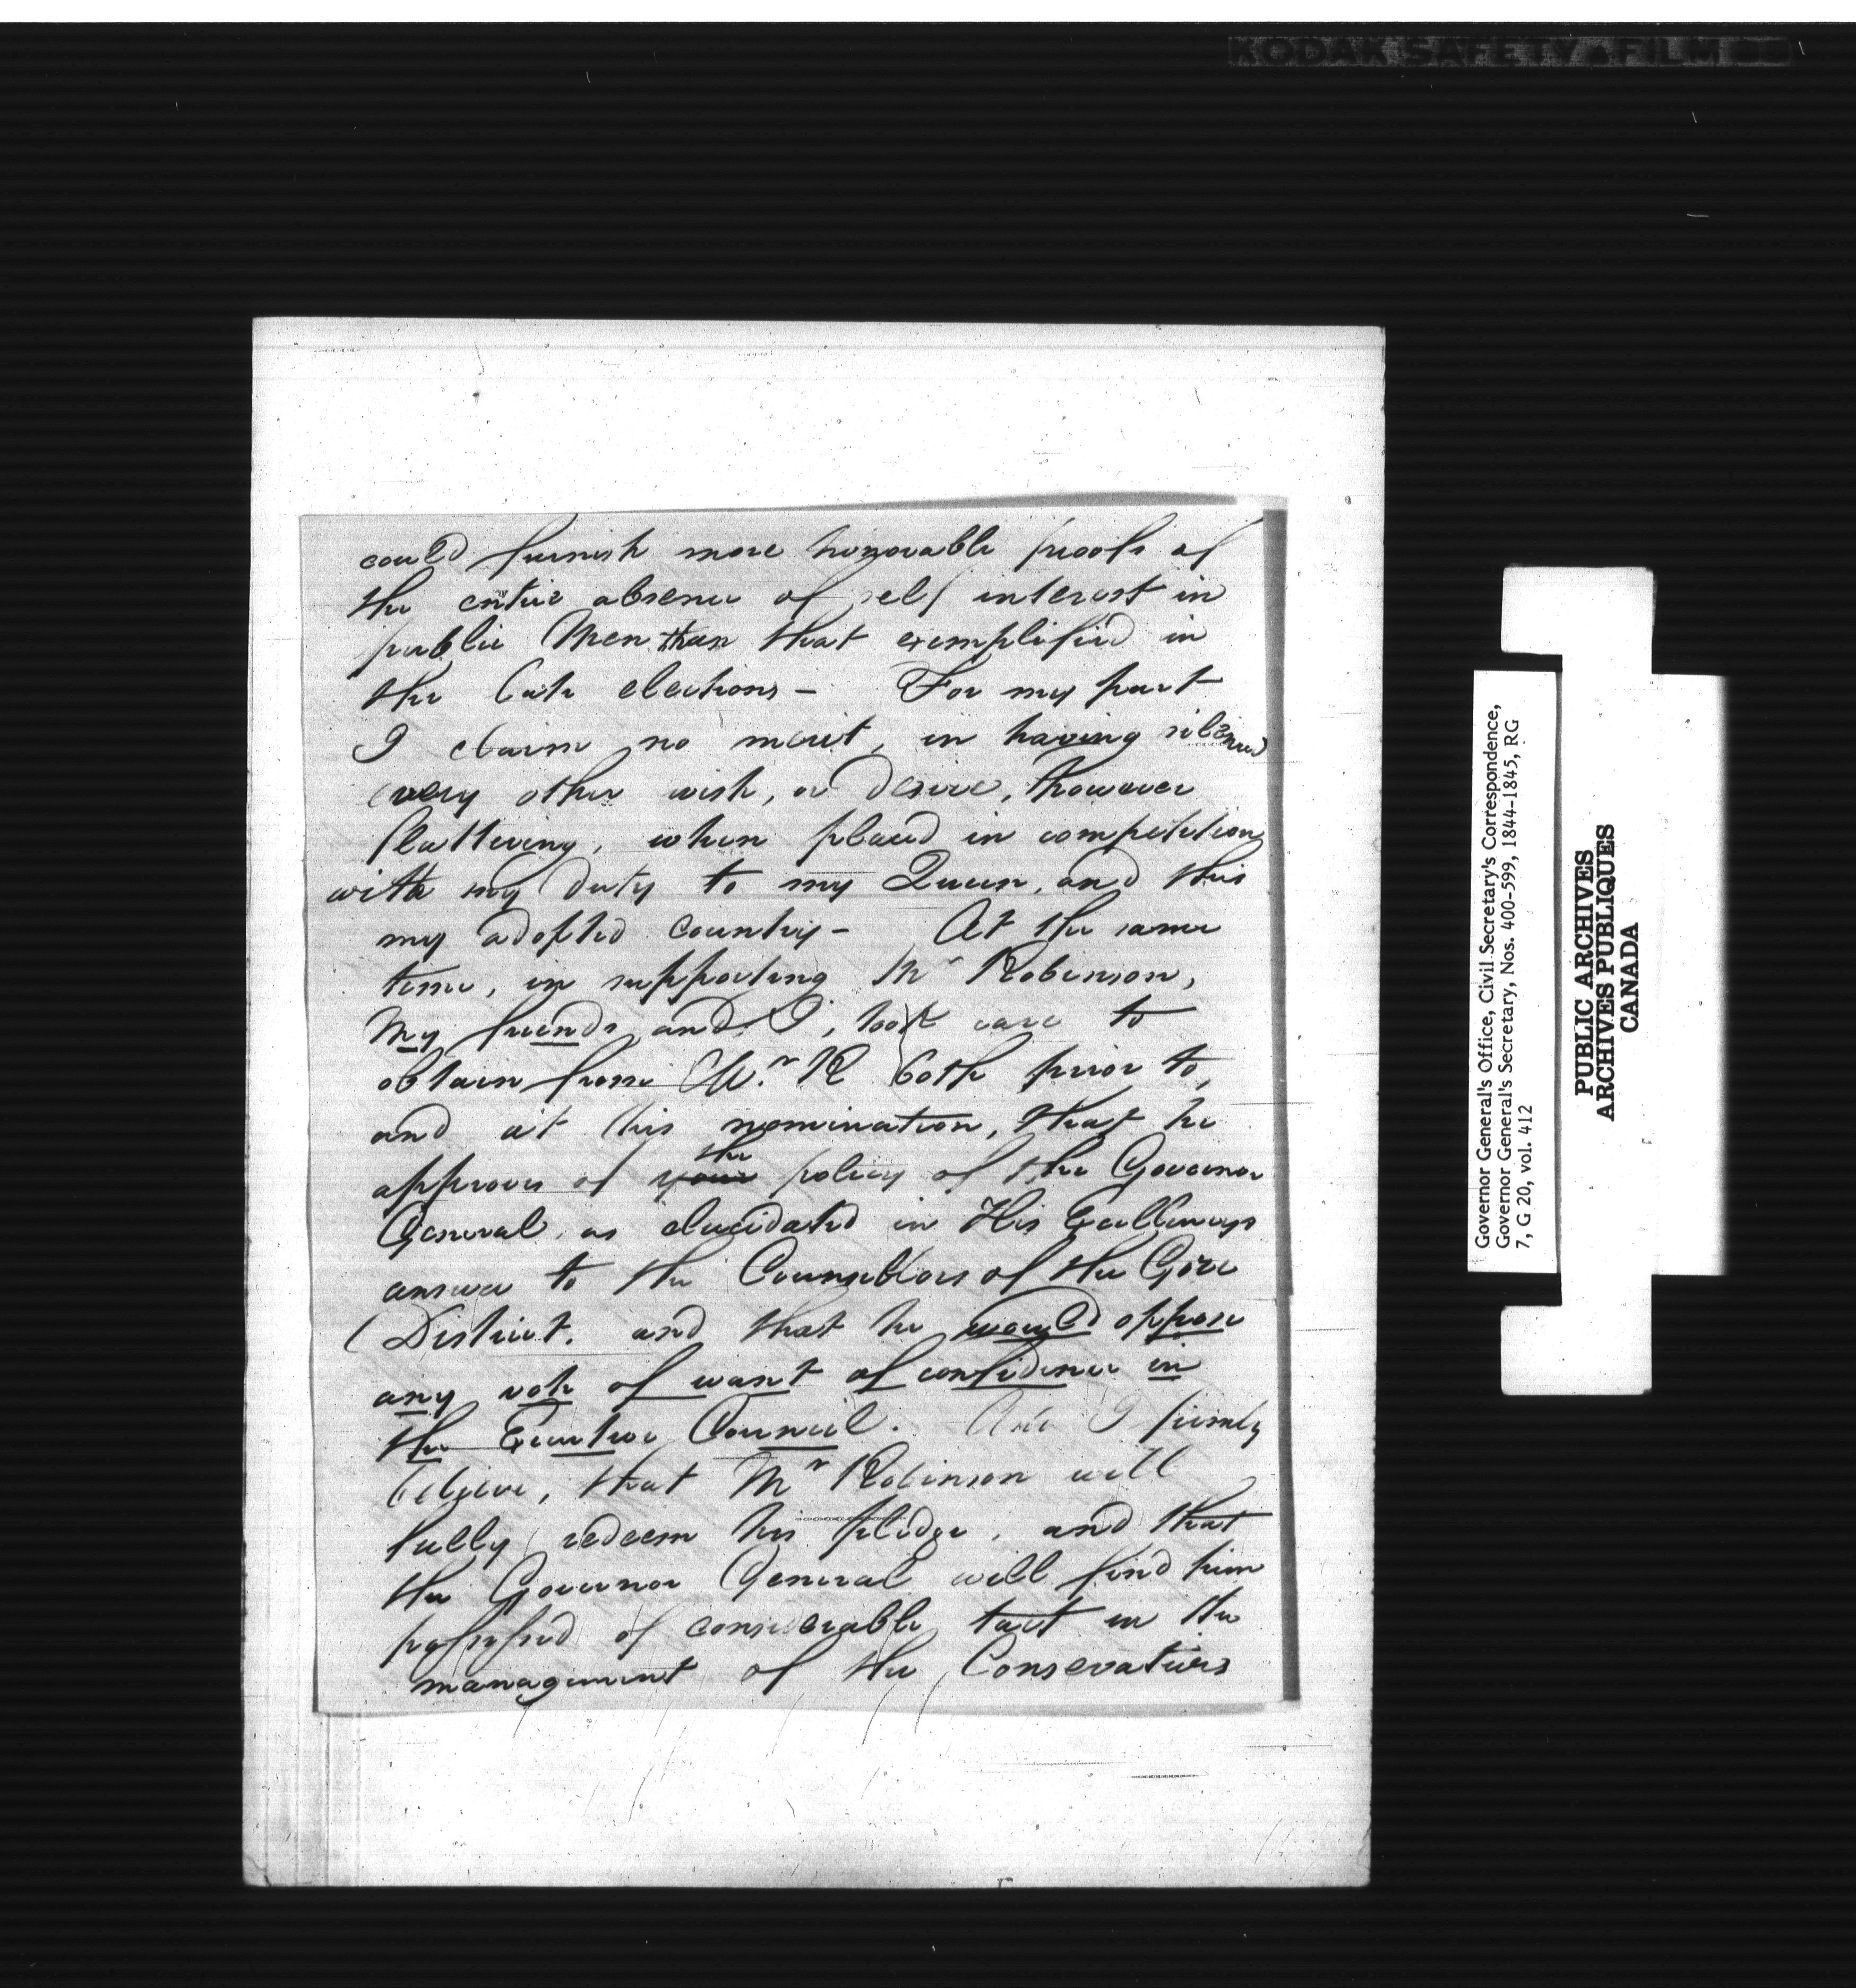 KODAK SAFETY FILM
could furnish more honorable proofs of
the entire absence of self interest in
public Men than that exemplified in
the late elections - For my part
I claim no merit, in having silenced
every other wish, or desire, however
flattering, when placed in competition
with my duty to my Queen, and this
my adopted country - At the same
time, in supporting Mr Robinson,
My friends and I, took care to
obtain from Mr. R both prior to,
and at his nomination, that he
approves of your the policy of the Governor
General, as elucidated in His Excellencys
answer to the Councillors of the Gore
District. and that he would oppose
any vote of want of confidence in
the Executive Council. And I firmly
believe, that Mr Robinson will
fully redeem his pledge, and that
the Governor General will find him
possessed of considerable tact in the
management of the Conservatives
Governor General's Office, Civil Secretary's Correspondence,
Governor General's Secretary, Nos. 400-599, 1844-1845, RG
7, G 20, vol. 412
PUBLIC ARCHIVES
ARCHIVES PUBLIQUES
CANADA